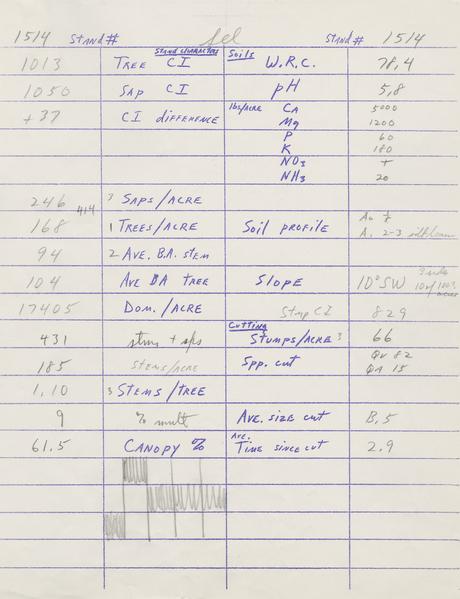 1514 STAND# Sel STAND# 1514
STAND CHARACTERS Soils
1013 TREE CI W.R.C. 78,4
1050 SAP CI pH 5,8
+37 CI DIFFERENCE lbs/ACRE CA 5000
Mg 1200
P 60
K 180
NO3 +
NH3 20
246 ? SAPS/ACRE
414
168 1 TREES/ACRE Soil PROFILE
A1 2-3 silt loam
94 2 AVE. B.A. STEM
104 AVE BA TREE SLOPE 10° SW
17405 DOM./ACRE Stmp CI 829
CUTTING
431 stms + sps STUMPS/ACRE 3 66
185 STEMS/ACRE Spp. CUT QV 82
QA 15
1,10 3 STEMS/TREE
9 % mult AVE. SIZE CUT 8,5
61.5 CANOPY % AVE. TIME SINCE CUT 2.9